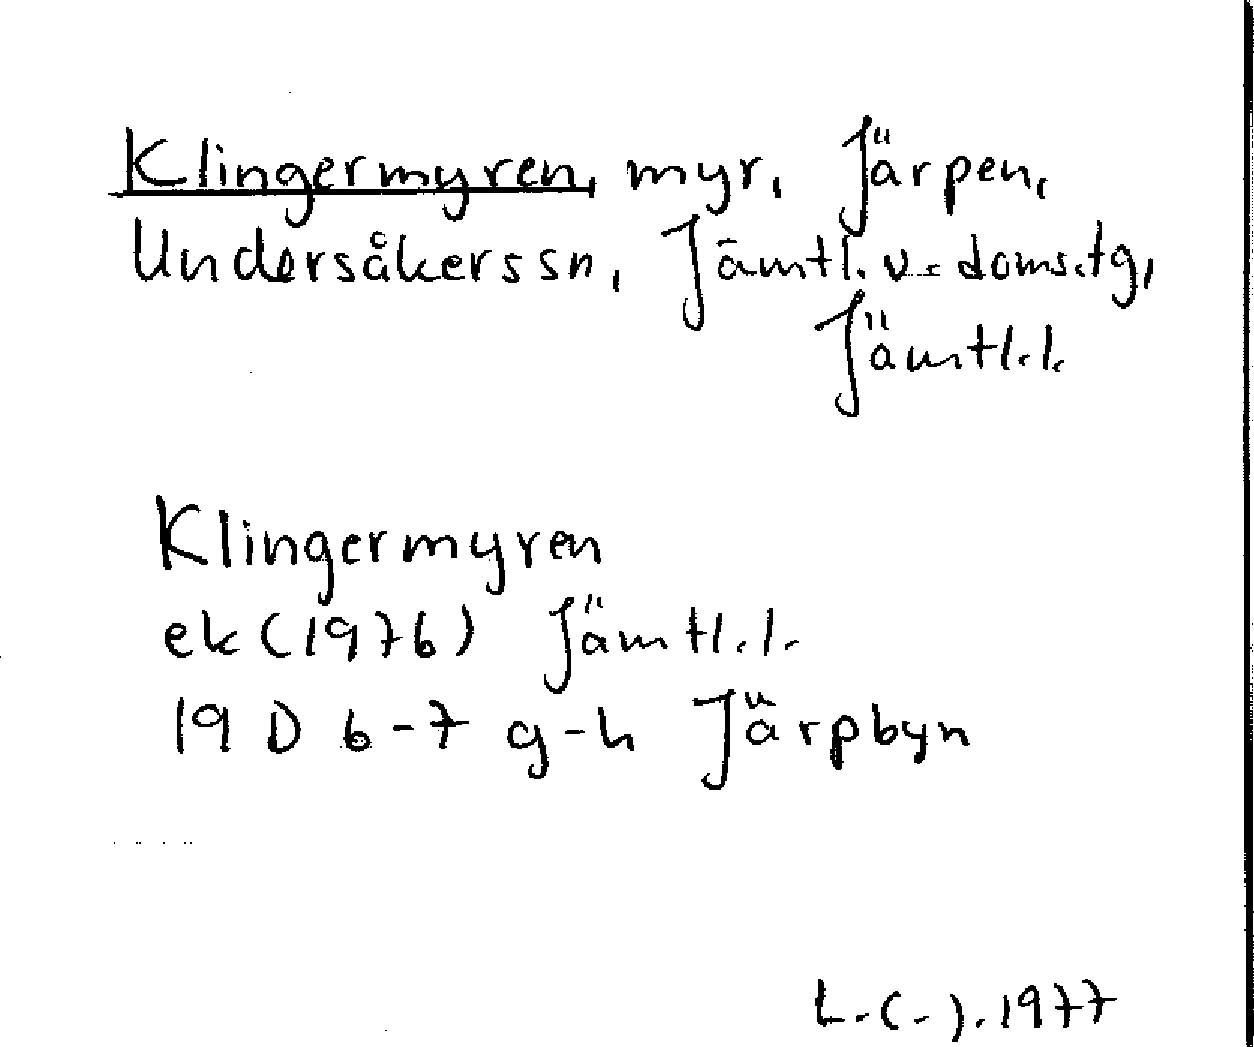 Klingermyren, myr, Järpen,
Undersåkers sn, Jämtl. v. doms.tg,
Jämtl.l.
Klingermyren
ek (1976) Jämtl.l.
19 D 6-7 g-h Järpbyn
L.(-).1977